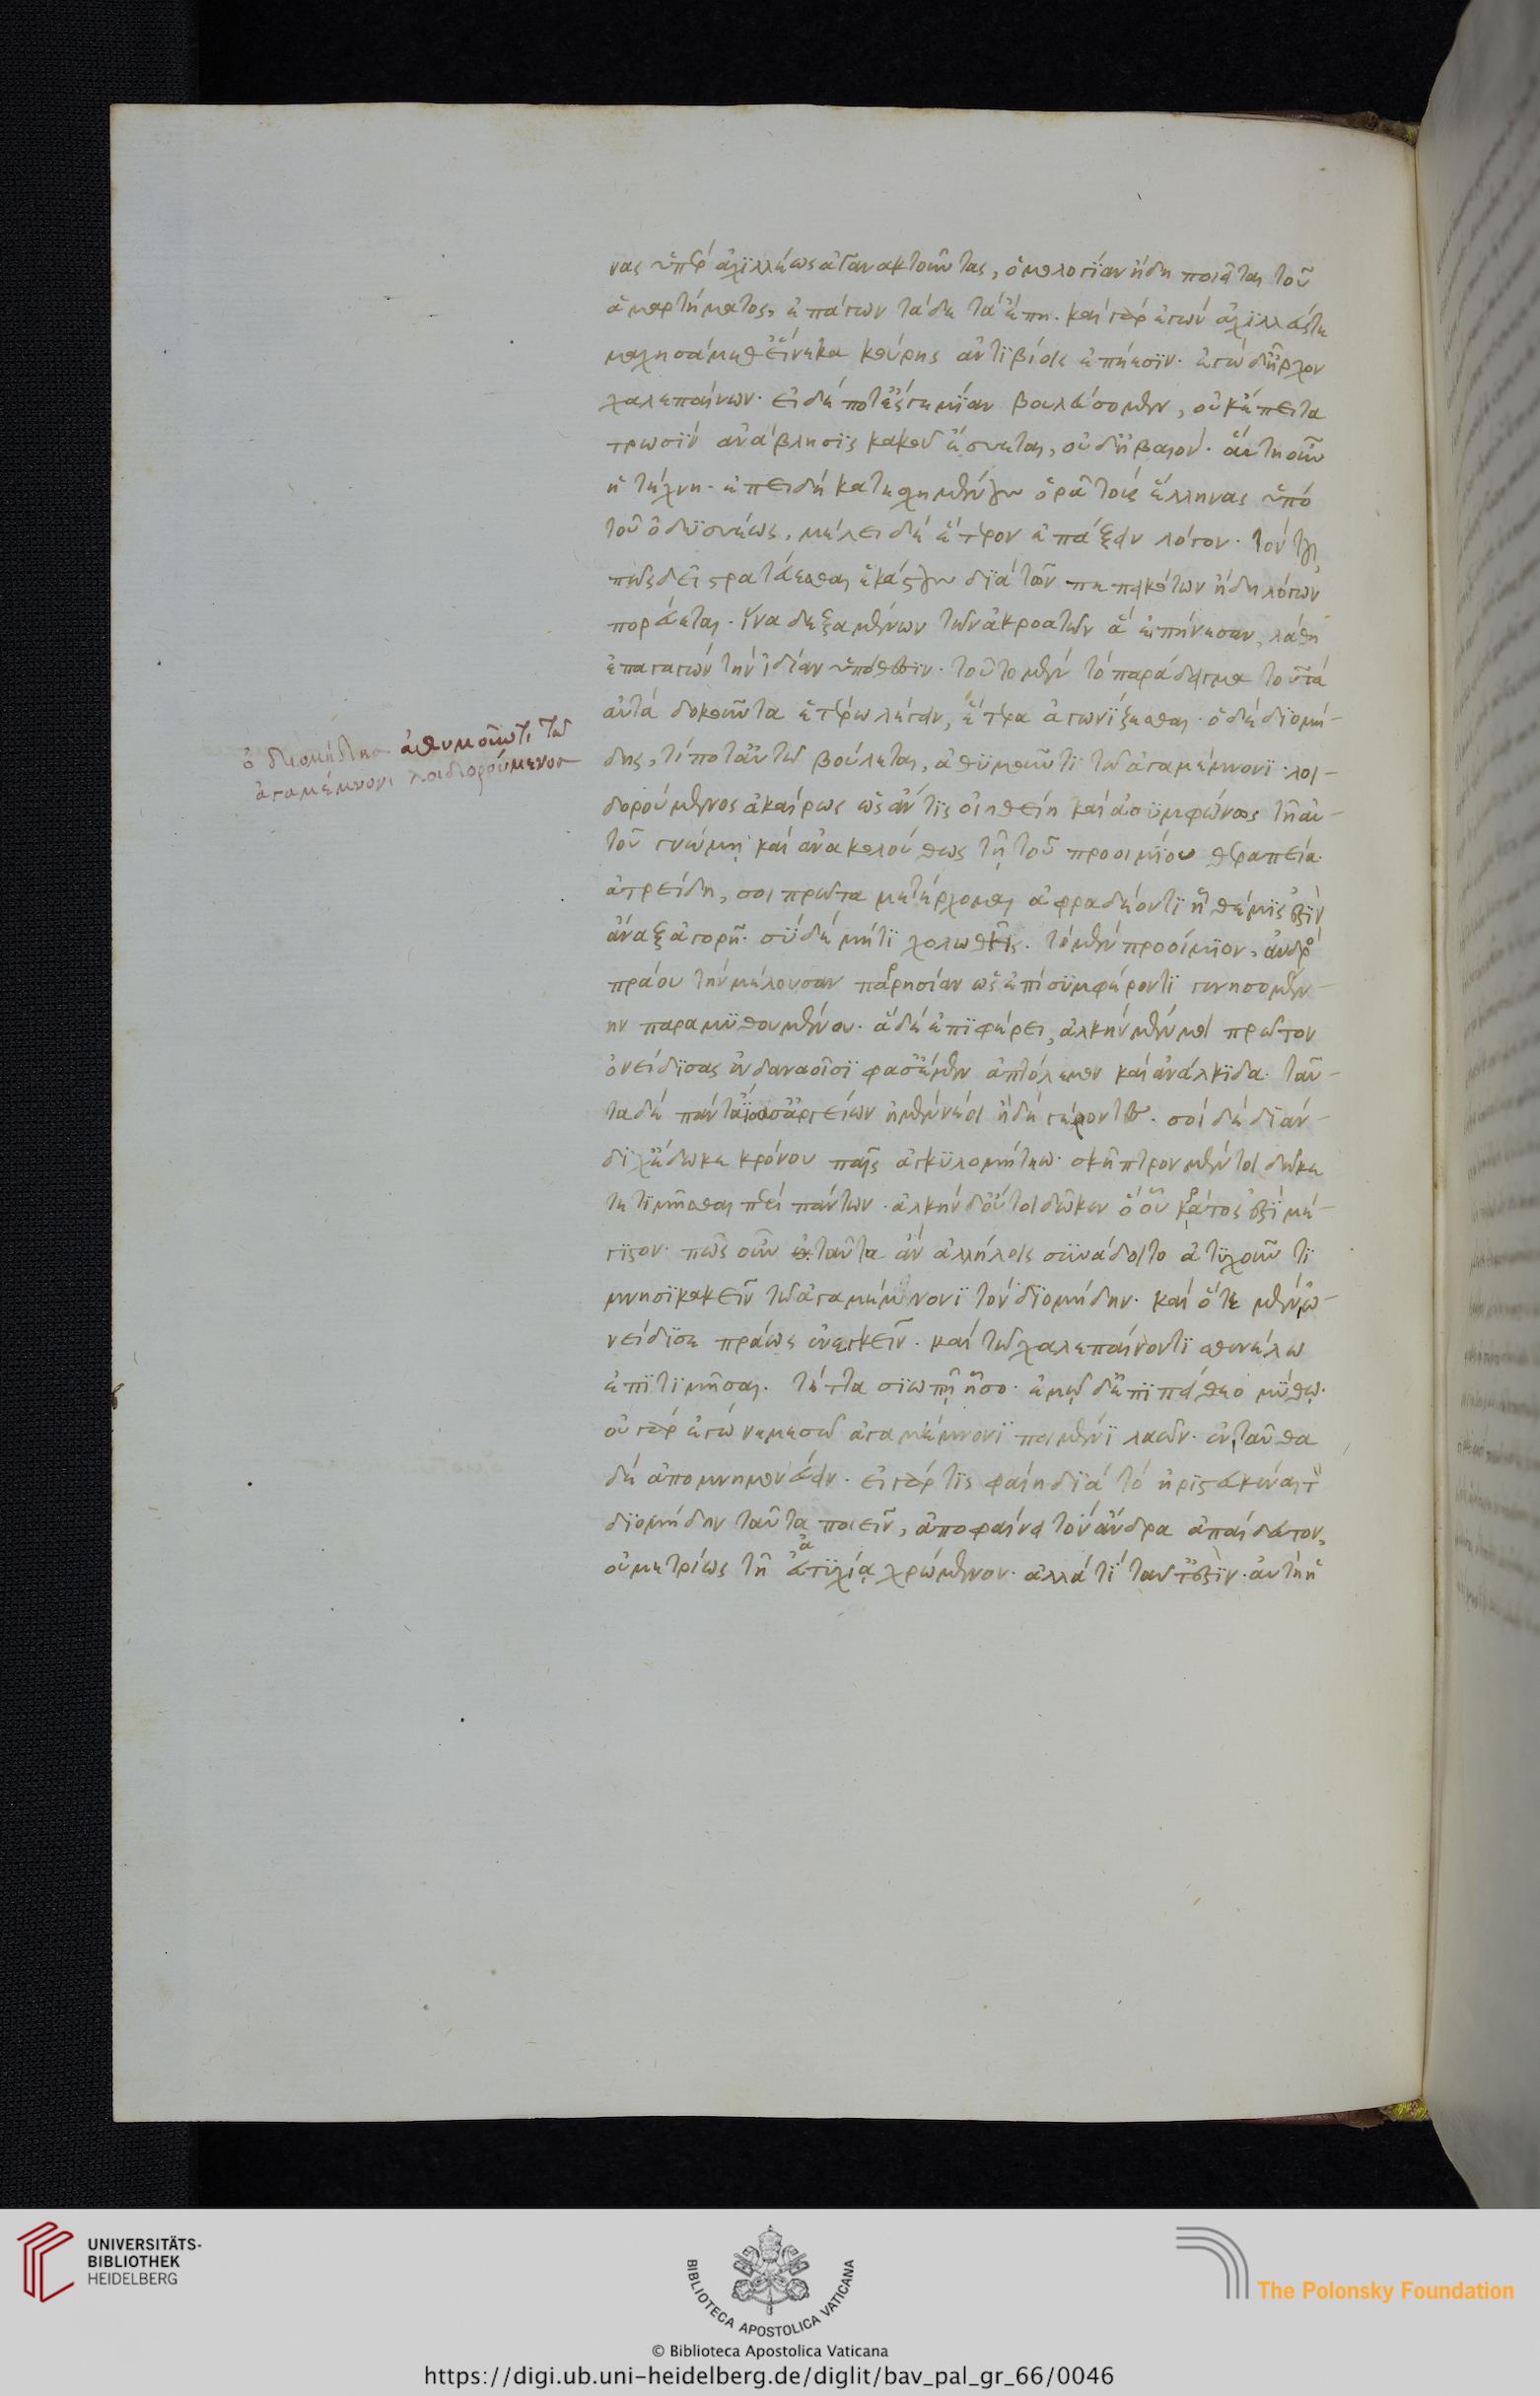 νας ὑπὲρ ἀχιλλέως ἀγανακτοῦντας, ὁμολογίαν ἤδη ποιεῖται τοῦ
ἁμαρτήματος, ἐπάγων τάδε τὰ ἔπη. καὶ γὰρ ἐγὼν ἀχιλλεύς τε
μαχησάμεθ' εἵνεκα κούρης ἀντιβίοις ἐπέεσιν. ἐγὼ δ' ἦρχον
χαλεπαίνων. εἰ δέ ποτ' ἔς γε μίαν βουλεύσομεν, οὐκ ἔπειτα
τρωσὶν ἀνάβλησις κακοῦ ἔσσεται, οὐδ' ἠβαιόν. αὕτη οὖν
ἡ τέχνη. ἐπειδὴ κατεχημένους ὁρᾷ τοὺς ἕλληνας ὑπὸ
τοῦ ὀδυσσέως, μέλει δὲ ἕτερον ἐπάξειν λόγον. τὸν
πῶς δεῖ στρατεύεσθαι ἑκάστους διὰ τῶν πεπεικότων ἤδη λόγων
πορεύεται. ἵνα δεξαμένων τῶν ἀκροατῶν ἃ ἐπήνεσαν, λάθη
ἐπαγαγὼν τὴν ἰδίαν ὑπόθεσιν. τοῦτο μὲν τὸ παράδειγμα τοῦ τὰ
αὐτὰ δοκοῦντα ἑτέρω λέγειν, ἕτερα ἀγωνίζεσθαι. ὁ δὲ διομή-
δης, τί ποτ' αὐτῶ βούλεται, ἀθυμοῦντι τῶ ἀγαμέμνονι λοι-
δορούμενος ἀκαίρως ὡς ἄν τις οἰηθείη καὶ ἀσυμφώνως τῆ αὐ-
τοῦ γνώμη καὶ ἀνακολούθως τῆ τοῦ προοιμίου θεραπεία.
ἀτρείδη, σοι πρῶτα μετέρχομαι ἀφραδέοντι ἣ θέμις ἐστὶν
ἄναξ ἀγορῆ. σὺ δὲ μήτι χολωθῆς. τὸ μὲν προοίμιον, ἀνδρὸς
πράου τὴν μέλουσαν παρρησίαν ὡς ἐπὶ συμφέροντι γενησομέν-
ην παραμυθουμένου. ἃ δὲ ἐπιφέρει, ἀλκὴν μέν μοι πρῶτον
ὀνείδισας ἐν δαναοῖσι φὰς ἔμεν ἀπτόλεμον καὶ ἀνάλκιδα. ταῦ-
τα δὲ πάντ' ἴσασ' ἀργείων ἠμὲν νέοι ἠδὲ γέροντες. σοὶ δὲ διάν-
διχ' ἔδωκε κρόνου παῖς ἀγκυλομήτεω. σκῆπτρον μέν τοι δῶκε
τετιμῆσθαι περὶ πάντων. ἀλκὴν δ' οὔτοι δῶκεν ὅ οὖ κράτος ἐστὶ μέ-
γιστον. πῶς οὖν ταῦτα ἂν ἀλλήλοις συνάδοιτο ἀτυχοῦντι
μνησικακεῖν τῶ ἀγαμέμνονι τὸν διομήδην. καὶ ὅτε μὲν ὠ-
νείδισε πράως ἐνεγκεῖν. καὶ τῶ χαλεπαίνοντι σθενέλω
ἐπιτιμῆσαι. τέττα σιωπῇ ἧσο. ἐμῷ δ' ἐπιπείθεο μύθῳ.
οὐ γὰρ ἐγὼ νεμεσῶ ἀγαμέμνονι ποιμένι λαῶν. ἐνταῦθα
δὲ ἀπομνημονεύειν. εἰ γάρ τις φαίη διὰ τὸ ἠριστευκέναι τὸν
διομήδην ταῦτα ποιεῖν, ἀποφαίνει τὸν ἄνδρα ἀπαίδευτον,
οὐ μετρίως τῆ εὐτυχίᾳ χρώμενον. ἀλλὰ τί ταῦτ' ἐστιν. αὐτὴ ἡ
ὁ διομήδησ ἀθυμοῦντι τῶ
ἀγαμέμνονι λοιδορούμενοσ
UNIVERSITÄTS-
BIBLIOTHEK
HEIDELBERG
BIBLIOTECA APOSTOLICA VATICANA
The Polonsky Foundation
© Biblioteca Apostolica Vaticana
https://digi.ub.uni-heidelberg.de/diglit/bav_pal_gr_66/0046